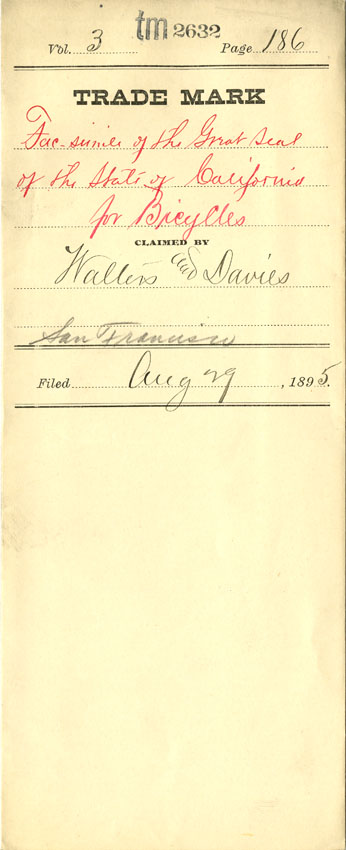 tm 2632
Vol. 3 Page 186
TRADE MARK
Fac-simile of the Great Seal
of the State of California
for Bicylles
CLAIMED BY
Walters and Davies
San Francisco
Filed Aug 29, 1895.